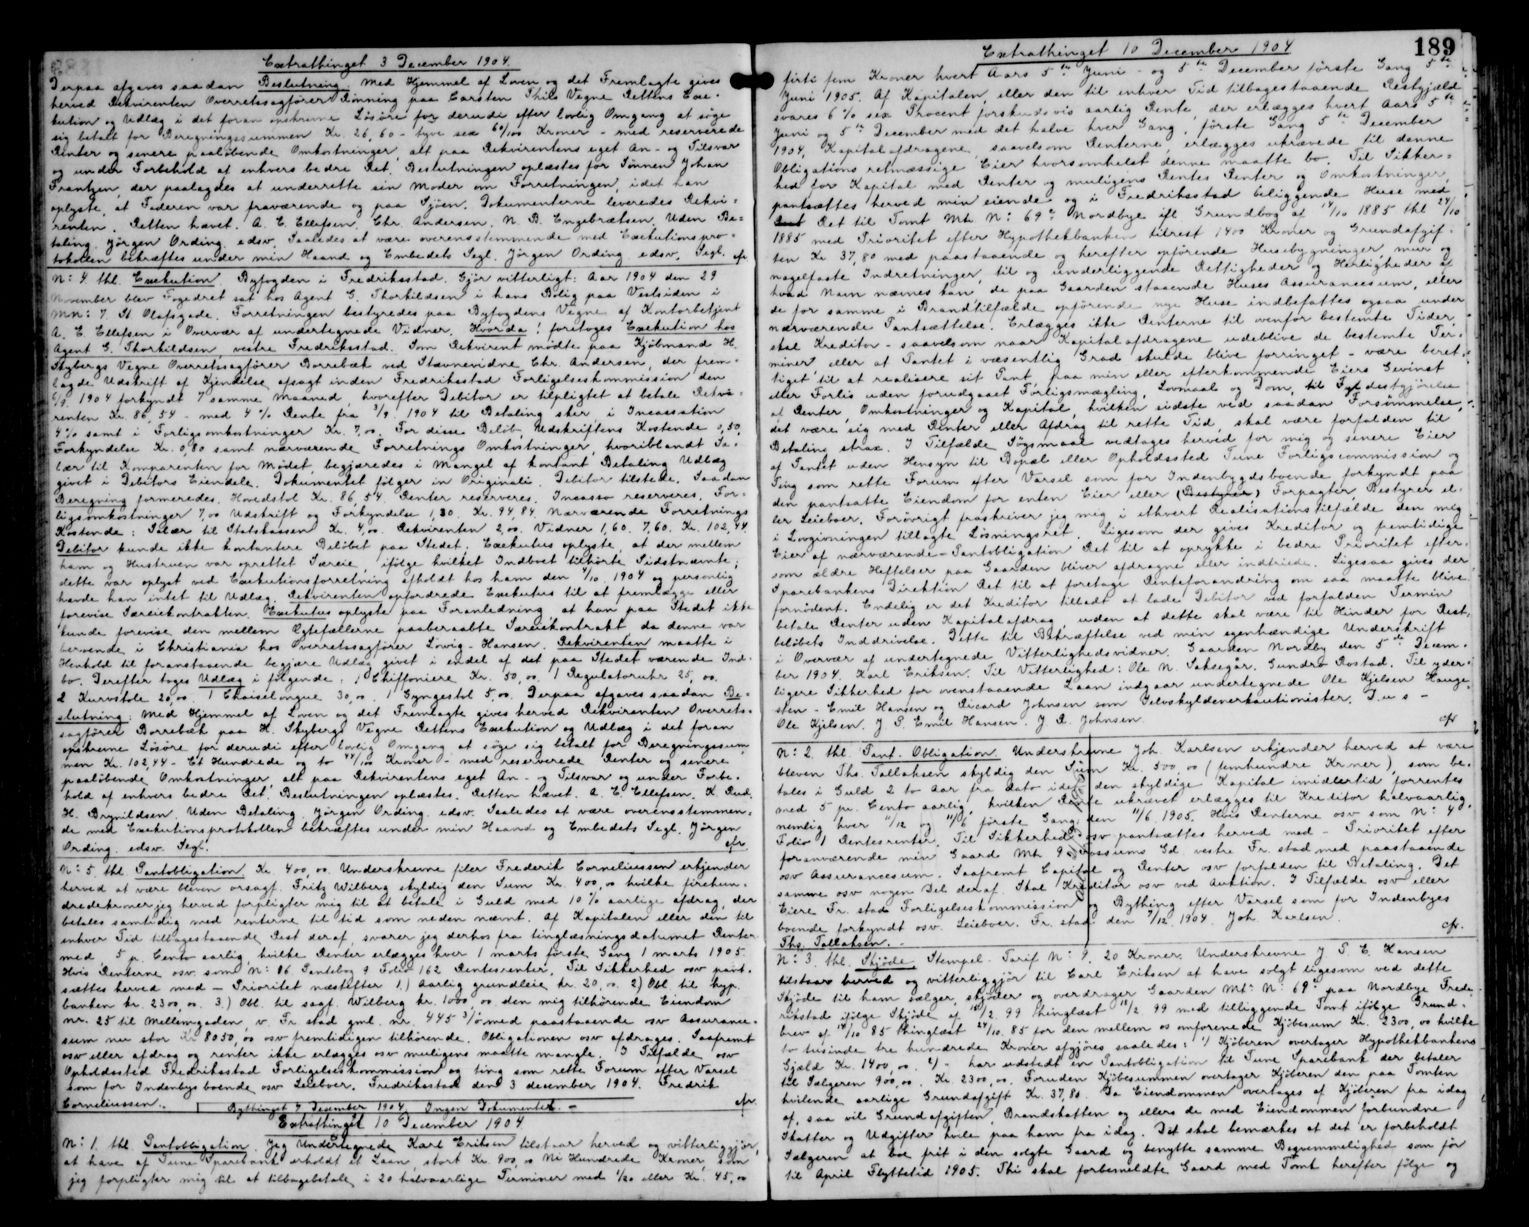 Extrathinget 3 December 1904.
Derpaa afgaves saadan Beslutning Med Hjemmel af Loven og det Fremlagte gives
herved Rekvirenten Overretssagfører Rönning paa Carsten Thils Vegne Rettens Exe-
kution og Udlæg i det foran opskrevne Lösöre for derudi efter lovlig Omgang at söge
sig betalt for Beregningssummen Kr. 26,60 - tyve sex 60/100 Kroner - med reserverede
Renter og senere paalöbende Omkostninger, alt paa Rekvirentens eget An- og Tilsvar
og under Forbehold af enhvers bedre Ret. Beslutningen oplæstes for Sönnen Johan
Frantzen, der paalagdes at underrette sin Moder om Forretningen, idet han
oplyste, at Faderen var fraværende og paa Sjöen. Dokumenterne leveredes Rekvi-
renten. Retten hævet. A. E. Ellefsen. Chr. Andersen. N. B. Engebrætsen. Uden Be-
taling. Jörgen Ording. edsv. Saaledes at være overensstemmende med Exekutionspro-
tokollen bekræftes under min Haand og Embedets Segl. Jörgen Ording edsv. Segl. efr
N: 4. thl. Exekution. Byfogden i Fredriksstad. Gjör vitterligt: Aar 1904 den 29
November blev Fogedret sat hos Agent G. Thorkildsen i hans Bolig paa Vestsiden i
Mn: 7. St Olafsgade. Forretningen bestyredes paa Byfogdens Vegne af Kontorbetjent
A. E. Ellefsen i Overvær af undertegnede Vidner. Hvorda! foretoges Exekution hos
Agent G. Thorkildsen, vestre Fredriksstad. Som Rekvirent mödte paa Kjöbmand H.
Skybergs Vegne Overretssagförer Borrebæk ved Stævnevidne Chr. Andersen, der frem-
lagde Udskrift af Kjendelse afsagt inden Fredriksstad Forligelseskommission den
6/9. 1904 forkyndt 7 samme Maaned, hvorefter Debitor er tilpligtet at betale Rekvi-
renten Kr. 86,54 - med 4 % Rente fra 3/9. 1904 til Betaling sker, i Incassation
4% samt i Forligsomkostninger Kr. 7,00. For disse Belöb, Udskriftens Kostende 0,50,
Forkyndelse Kr. 0,80 samt nærværende Forretnings Omkostninger, hvoriblandt Sa-
lær til Komparenten for Mödet, begjæredes i Mangel af kontant Betaling Udlæg
givet i Debitors Eiendele. Dokumentet fölger in Originali. Debitor tilstede. Saadan
Beregning formeredes. Hovedstol Kr. 86,54. Renter reserveres. Incasso reserveres. For-
ligsomkostninger 7,00 Udskrift og Forkyndelse 1,30. Kr. 94,84. Nærværende Forretnings
Kostende: Salær til Statskassen Kr. 4,00. Rekvirenten 2,00. Vidner 1,60. 7,60. Kr. 102,44
Debitor kunde ikke kontantere Belöbet paa Stedet. Exekutus oplyste, at der mellem
ham og Hustruen var oprettet Særeie, ifölge hvilket Indboet tilhörte Sidstnævnte;
dette var oplyst ved Exekutionsforretning afholdt hos ham den /10. 1904 og personlig
havde han intet til Udlæg. Rekvirenten opfordrede Exekutus til at fremlægge eller
forevise Særeiekontrakten. Exekutus oplyste paa Foranledning at han paa Stedet ikke
kunde forevise den mellem Ægtefællerne paaberaabte Særeiekontrakt da denne var
beroende i Christiania hos Overretssagförer Lövig-Hansen. Rekvirenten maatte i
Henhold til foranstaaende begjære Udlæg givet i endel af det paa Stedet værende Ind-
bo. Derefter toges Udlæg i fölgende: 1 Chiffoniere Kr. 50,00. 1 Regulatoruhr 25,00.
2 Kurvstole 20,00. 1 Chaiselongue 30,00. 1 Gyngestol 5,00. Derpaa afgaves saadan Be-
slutning: Med Hjemmel af Loven og det Fremlagte gives herved Rekvirenten Overrets-
sagförer Borrebæk paa H. Skybergs Vegne Rettens Exekution og Udlæg i det foran
opskrevne Lösöre for derudi efter lovlig Omgang at söge sig betalt for Beregningssum
men Kr. 102,44 - Et Hundrede og to 44/100 Kroner - med reserverede Renter og senere
paalöbende Omkostninger, alt paa Rekvirentens eget An- og Tilsvar og under Forbe-
hold af enhvers bedre Ret. Beslutningen oplæstes. Retten hævet. A. E. Ellefsen. K. Rud.
H. Brynildsen. Uden Betaling. Jörgen Ording. edsv. Saaledes at være overensstemmen-
de med Exekutionsprotokollen bekræftes under min Haand og Embedets Segl. Jörgen
Ording. edsv. Segl. efr
N: 5. thl. Pantobligation Kr. 400,00. Underskrevne filer Frederik Corneliussen erkjender
herved at være bleven orsagf. Fritz Wilberg skyldig den Sum Kr. 400,00 hvilke firehun-
dredekroner jeg herved forpligter mig til at betale i Guld med 10 % aarlige afdrag, der
betales samtidig med renterne til tid som neden nævnt. Af Kapitalen eller den til
enhver Tid tilbagestaaende Rest deraf, svarer jeg derhos fra tinglæsningsdatumet Renter
med 5 p. Cento aarlig, hvilke Renter erlægges hver 1 marts förste Gang 1 marts 1905.
Hvis Renterne osv. som N: 86 Pantebog 9 Folio 162 Rentesrenter. Til Sikkerhed osv pant-
sættes herved med - Prioritet næstefter 1.) Aarlig grundleie kr. 20,00. 2) Obl til hyp.
banken kr. 2300,00. 3.) Obl. til sagf. Wilberg kr. 1000,00. den mig tilhörende Eiendom
nr. 25 til Mellemgaden, v. Fr stad gml. nr. 445 3/5 med paastaaende osv Assurance-
sum nu stor Kr 8050,00 osv fremtidigen tilhörende. Obligationen osv afdrages. Saafremt
osv eller afdrag og renter ikke erlægges osv muligens maatte mangle. I Tilfælde osv
Opholdssted Fredriksstad Forligelseskommission og ting som rette Forum efter Varsel
som for Indenbysboende osv Leieboer. Fredriksstad den 3 desember 1904. Fredrik
Corneliussen. efr
Bythinget 7 December 1904. Ingen Dokumenter. -
Extrathinget 10 December 1904
N: 1. thl. Pantobligation. Jeg Undertegnede Karl Eriksen tilstaar herved og vitterliggjör,
at have af Tune Sparebank erholdt et Laan, stort Kr. 900,00 Ni Hundrede Kroner, som
jeg forpligter mig til at tilbagebetale i 20 halvaarlige Terminer med 1/20 eller Kr. 45,00
Extrathinget 10 December 1904 189
firti fem Kroner hvert Aars 5te Juni - og 5te December förste Gang 5te
Juni 1905. Af Kapitalen, eller den til enhver Tid tilbagestaaende Restgjæld
svares 6 % sex Procent forskudsvis aarlig Rente, der erlægges hvert Aars 5te
Juni og 5te December med det halve hver Gang, förste Gang 5te December
1904. Kapitalafdragene, saavelsom Renterne, erlægges ukrævede til denne
Obligations retmæssige Eier hvorsomhelst denne maatte bo. Til Sikker-
hed for Kapital med Renter og muligens Rentes Renter og Omkostninger,
pantsættes herved min eiende og i Fredriksstad beliggende Huse med
Ret til Tomt Mtr. N: 69a Nordbye ifl Grundbog af 14/10 1885 thl 24/10
1885 med Prioritet efter Hypothekbanken tilrest 1400 Kroner og Grundafgif-
ten Kr 37,80 med paastaaende og herefter opförende Husebygninger, mur og
nagelfaste Indretninger, til og underliggende Rettigheder og Herligheder af
hvad Navn nævnes kan, de paa Gaarden staaende Huses Assurancesum, eller
de for samme i Brandtilfælde opförende nye Huse indbefattes ogsaa under
nærværende Pantsættelse. Erlægges ikke Renterne til ovenfor bestemte Tider
skal Kreditor - saavelsom naar Kapitalafdragene udeblive de bestemte Ter-
miner eller at Pantet i væsentlig Grad skulde blive forringet - være beret-
tiget til at realisere sit Pant paa min eller efterkommende Eiers Gevinst
eller Forlis uden forudgaaet Forligsmægling, Lovmaal og Dom, til Fyldestgjörelse
af Renter Omkostninger og Kapital, hvilken sidste ved saadan Forsömmelse,
det være sig med Renter eller Afdrag til rette Tid, skal være forfalden til
Betaling strax. I Tilfælde Sögsmaal vedtages herved for mig og senere Eier
af Pantet uden Hensyn til Bopæl eller Opholdssted Tune Forligscommission og
Ting som rette Forum efter Varsel som for Indenbygdsboende forkyndt paa
den pantsatte Eiendom for enten Eier eller (Bestyrer) Forpagter, Bestyrer el-
ler Leieboer. Forövrigt fraskriver jeg mig i ethvert Realisationstilfælde den mig
i Lovgivningen tillagte Lösningsret. Ligesom der gives Kreditor og fremtidige
Eier af nærværende Pantobligation Ret til at oprykke i bedre Prioritet efter-
som ældre Heftelser paa Gaarden bliver afdragne eller indfriede. Ligesaa gives der
Sparebankens Direktion Ret til at foretage Renteforandring om saa maatte blive
fornödent. Endelig er det Kreditor tilladt at lade Debitor ved forfalden Termin
betale Renter uden Kapitalafdrag, uden at dette skal være til Hinder for Rest-
belöbets Inddrivelse. Dette til Bekræftelse ved min egenhændige Underskrift
i Overvær af undertegnede Vitterlighedsvidner. Gaarden Nordby den 5te Decem-
ber 1904. Karl Eriksen. Til Vitterlighed: Ole N. Saksegår. Gundro Rostad. Til yder-
ligere Sikkerhed for ovenstaaende Laan indgaar undertegnede Ole Kjelsen Hauge-
sten - Emil Hansen og Ricard Johnsen som Selvskyldnerkautionister. D.u.s -
Ole Kjelsen. J. S. Emil Hansen. J R. Johnsen. efr
N: 2. thl. Pant-Obligation. Underskrevne Joh. Karlsen erkjender herved at være
bleven Ths. Tallaksen skyldig den Sum Kr. 500,00 (femhundre Kroner), som be-
tales i Guld 2 to Aar fra dato idet den skyldige Kapital imidlertid forrentes
med 5 p. Cento aarlig, hvilken Rente ukrævet erlægges til Kreditor halvaarlig,
nemlig hver 11/12 og 11/6 förste Gang den 11/6 1905. Hvis Renterne osv som N: 4
Folio 1 Rentesrenter. Til Sikkerhed osv pantsættes herved med - Prioritet efter
foranværende min Gaard Mtr 9 Fossums Gd. vestre Fr. stad med paastaaende
osv Assurancesum. Saafremt Capital og Renter osv forfalden til Betaling. Det
samme osv nogen Del deraf. Skal Kreditor osv ved Auktion. I Tilfælde osv eller
Eiere Fr. stad Forligelseskommission og Bything efter Varsel som for Indenbyes
boende forkyndt osv. Leieboer. Fr. stad den 9/12 1904. Joh Karlsen.
Ths. Tallaksen. - efr.
N: 3. thl. Skjöde. Stempel-Tarif N: 9. 20 Kroner. Underskrevne J S. E. Hansen
tilstaar herved og vitterliggjör til Carl Eriksen at have solgt ligesom ved dette
Skjöde til ham sælger, skjöder og overdrager Gaarden Mt: N: 69a paa Nordbye Frede-
rikstad ifölge Skjöde af 15/2. 99 thinglæst 18/2 99 med tilliggende Tomt ifölge Grund-
brev af 14/10 85 thinglæst 24/10. 85 for den mellem os omforenede Kjöbesum Kr. 2300,00 hvilke
to tusinde tre hundrede Kroner afgjöres saaledes: 1/ Kjöberen overtager Hypothekbankens
Gjæld Kr. 1400,00. 2/- har udstedt en Pantobligation til Tune Sparebank der betaler
til Sælgeren 900,00. Kr. 2300,00. Foruden Kjöbesummen overtager Kjöberen den paa Tomten
hvilende aarlige Grundafgift Kr. 37,80. Da Eiendommen overtages af Kjöberen fra idag
af, saa vil Grundafgiften, Brandskatten og ellers de med Eiendommen forbundne
Skatter og Udgifter hvile paa ham fra idag. Det skal bemærkes at det er forbeholdt
Sælgeren at boe frit i den solgte Gaard og benytte samme Bequemmelighed som för
til April Flyttetid 1905. Thi skal forbemeldte Gaard med Tomt herefter fölge og